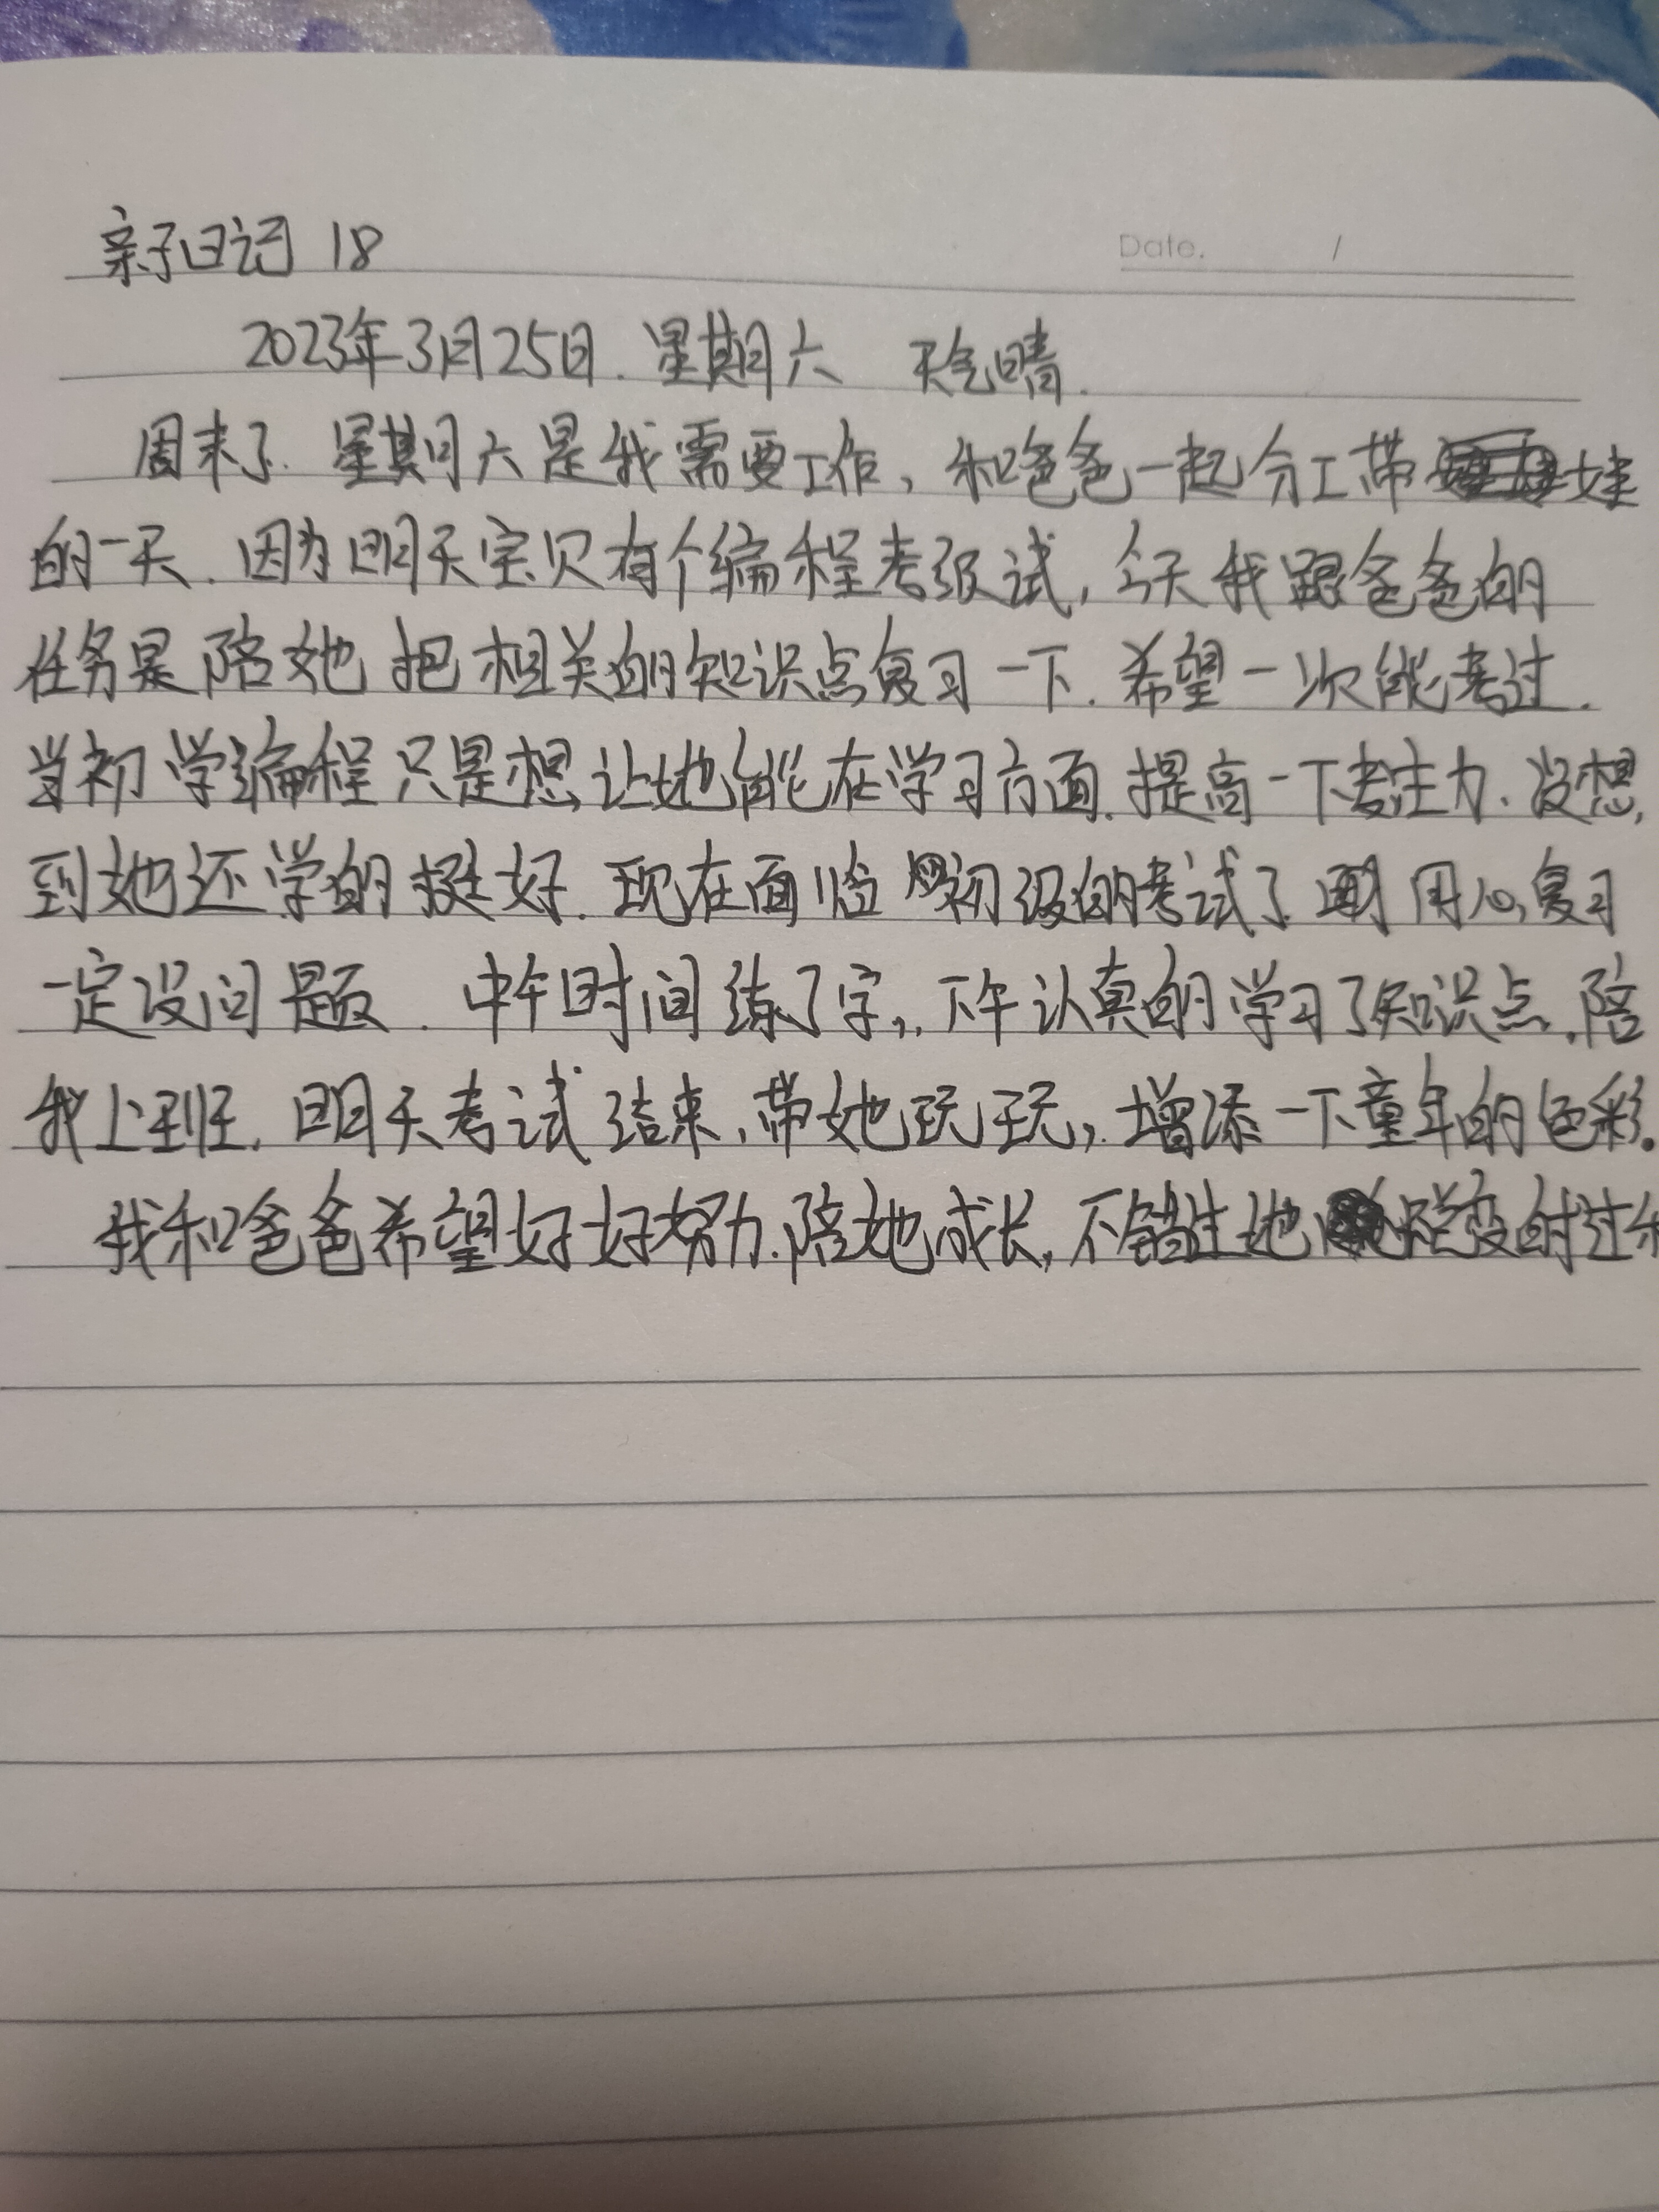 亲子日记 18
Date. /
2023年3月25日. 星期六 天气晴.
周末了. 星期六是我需要工作, 和爸爸一起分工带娃
的一天. 因为明天宝贝有个编程考级试, 今天我跟爸爸的
任务是陪她把相关的知识点复习一下. 希望一次能考过.
当初学编程只是想让她能在学习方面. 提高一下专注力. 没想,
到她还学的挺好. 现在面临初级的考试了. 用心复习
一定没问题. 中午时间练了字,. 下午认真的学习了知识点. 陪
我上班. 明天考试结束, 带她玩玩, 增添一下童年的色彩。
我和爸爸希望好好努力. 陪她成长, 不错过她蜕变的过